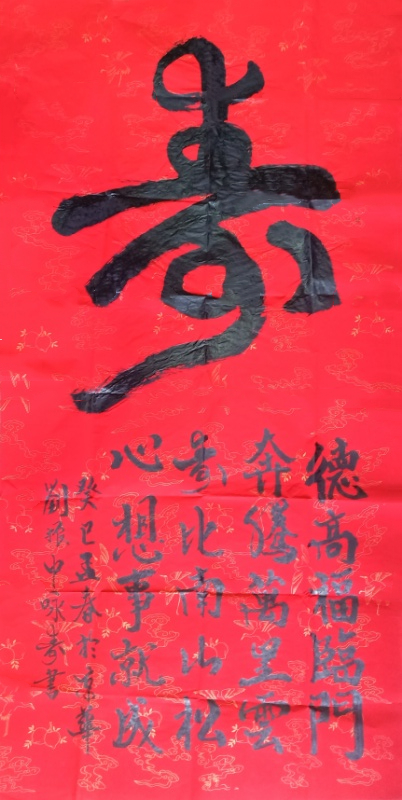 寿
德高福臨門
奔騰萬里雲
寿比南山松
心想事就成
癸巳孟春於京華
劉振中咏寿書